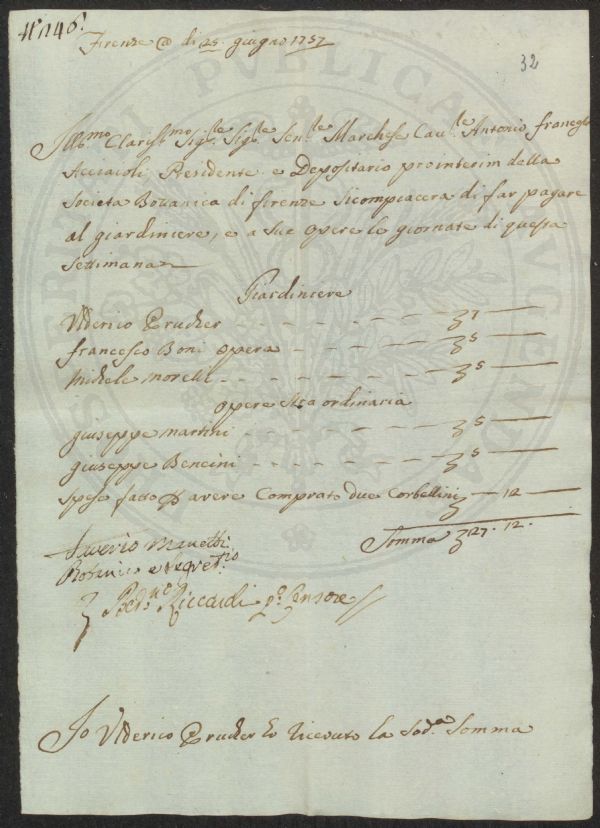 N° 146.
Firenze @ di 25 giugno 1757
32
Ill.mo Clariss.mo Sig.re Sig.re Sen.re Marchese Cav.re Antonio Franco
Acciaioli Residente e Depositario prointerim della
Societa Botanica di firenze si compiacerà di far pagare
al giardiniere, e a sue opere le giornate di questa
settimana
Giardiniere
Ulderico Prucker - - - - - - - 7 —
francesco Boni opera - - - - - - 5 —
Michele Morelli - - - - - - - 5 —
opere straordinaria
giuseppe Martini - - - - - - - 5 —
giuseppe Bencini - - - - - - - 5 —
spese fatto p avere Comprato due Corbellini — 12 —
Somma 27. 12.
Saverio Manetti
Botanico e Segret.rio
Riccardi p.o Censore
Io Ulderico Prucker ho ricevuto la Sod.a Somma
PUBLICA